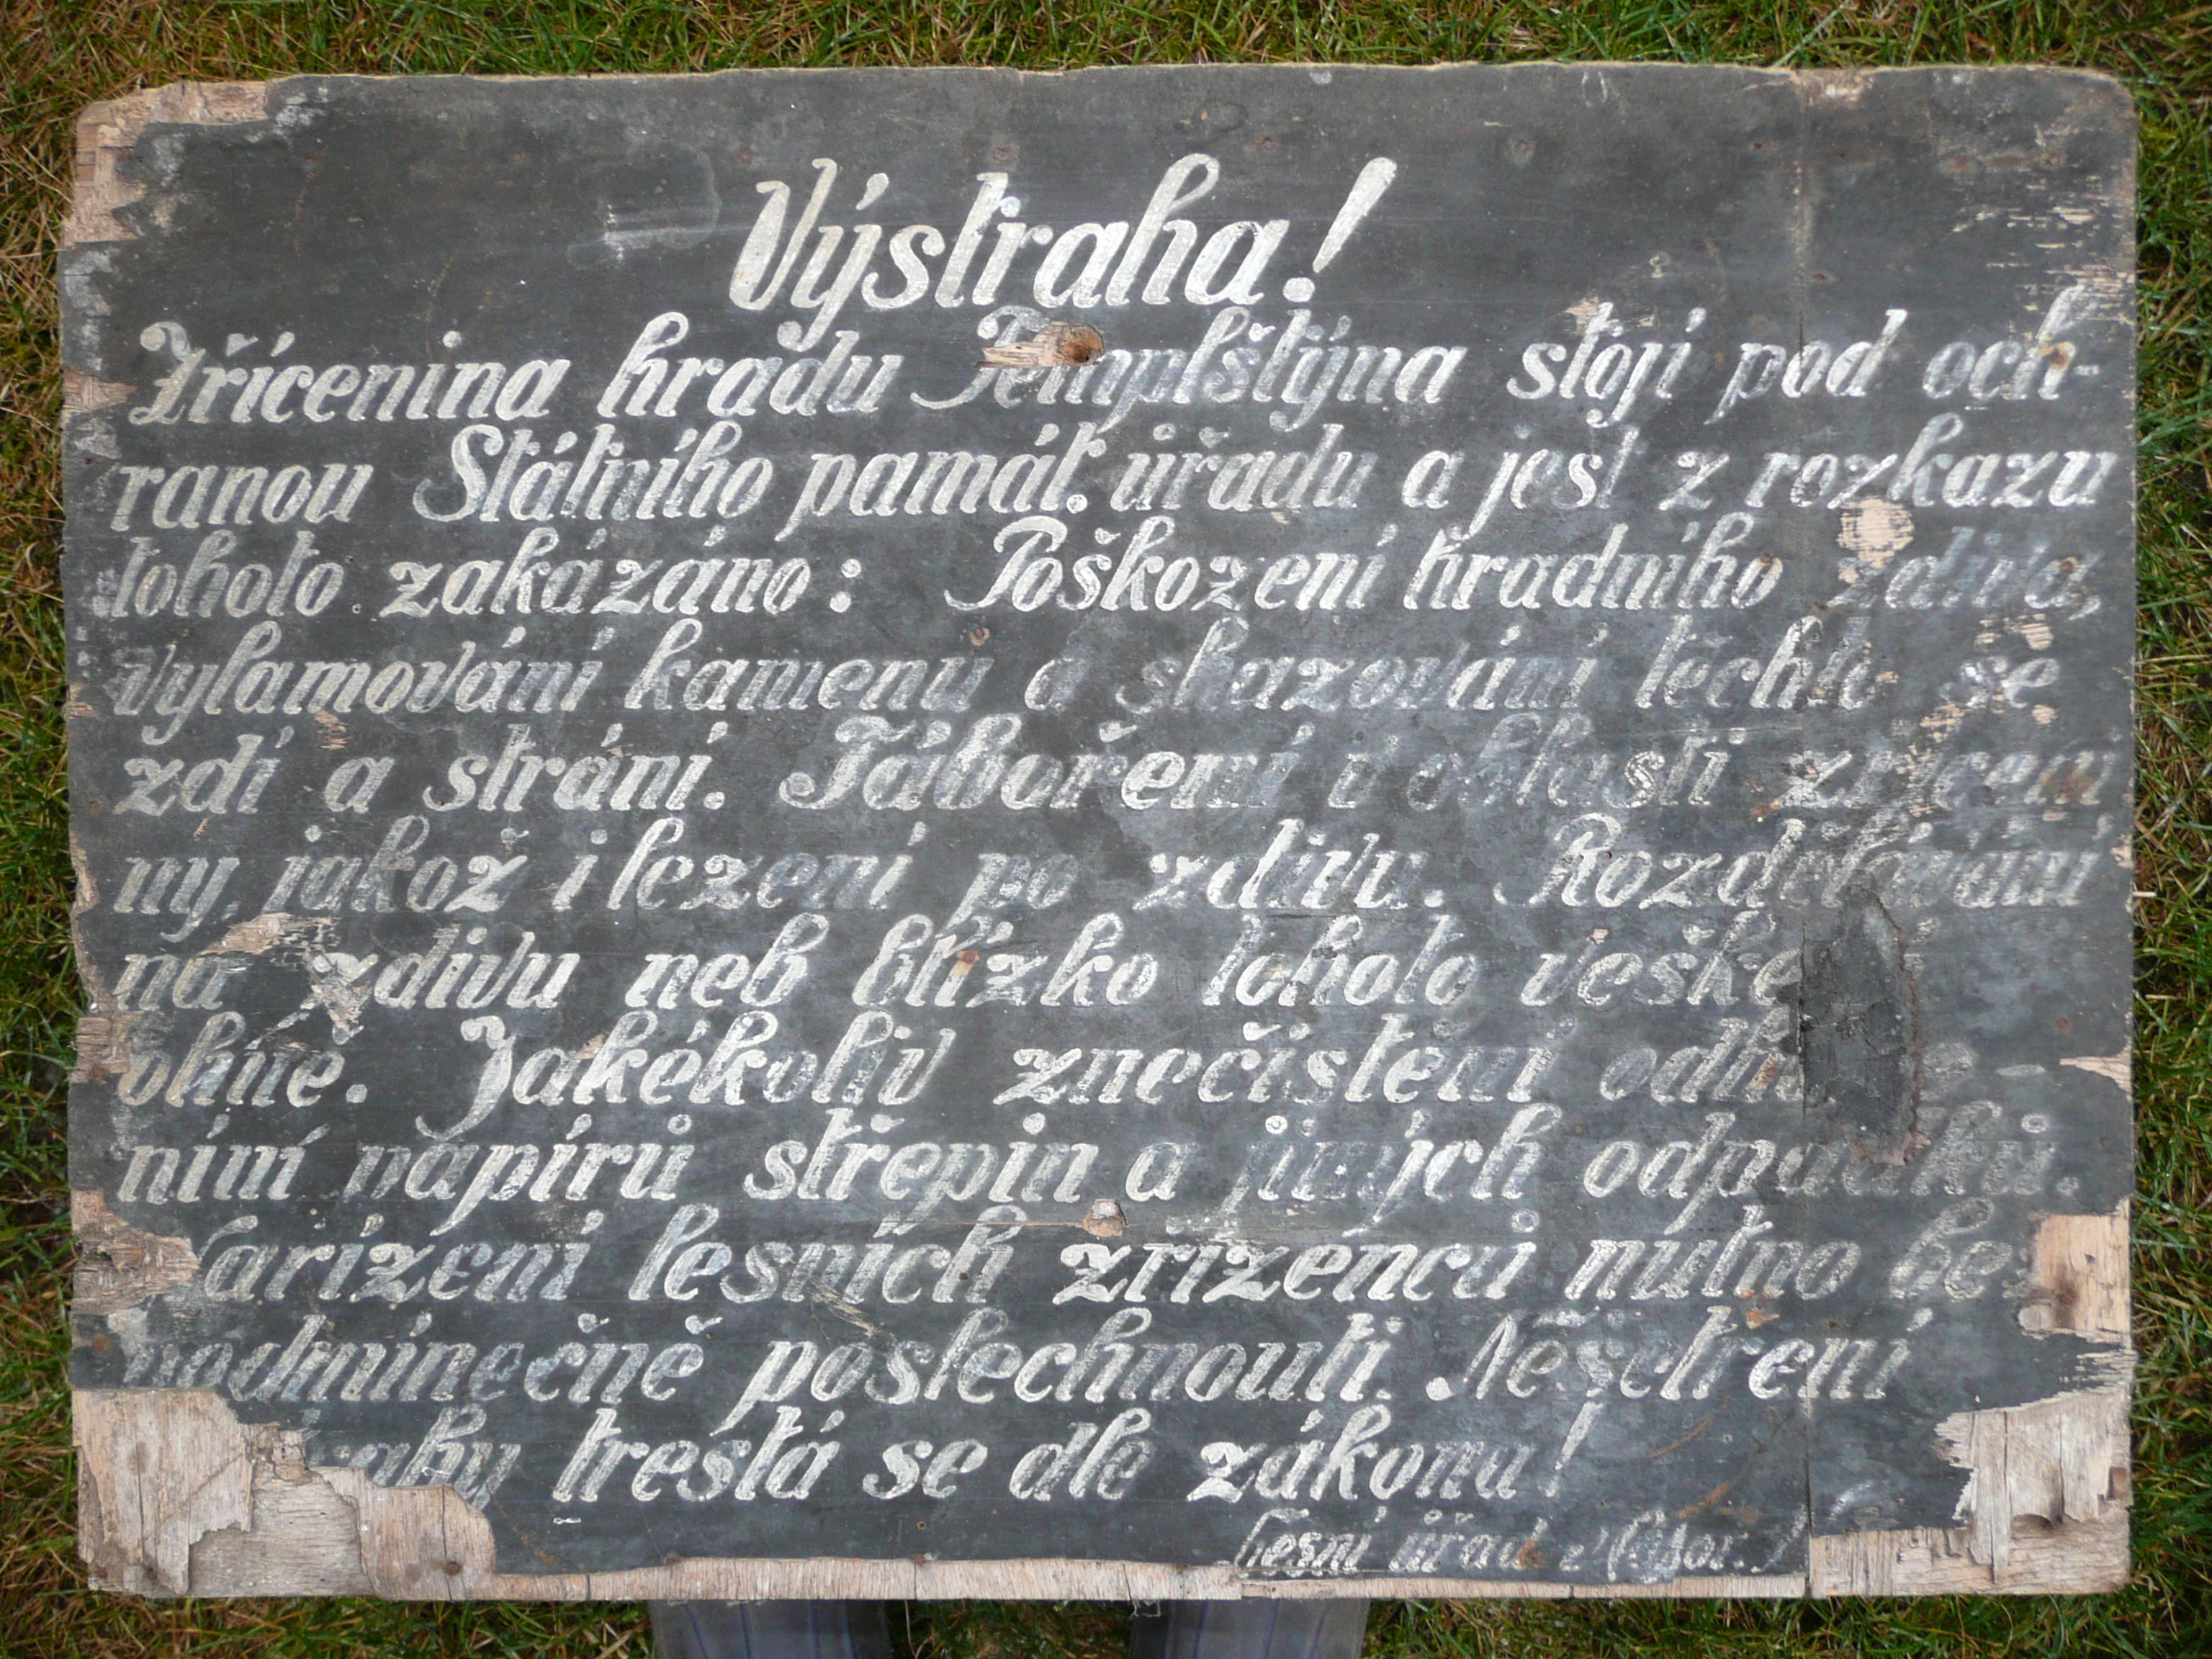 Výstraha!
Zřícenina hradu Templštýna stojí pod och-
ranou Státního památ. úřadu a jest z rozkazu
tohoto zakázáno: Poškození hradního zdiva,
vylamování kamenu a shazování těchto se
zdí a strání. Táboření v oblasti zříceni
ny, jakož i lezení po zdivu. Rozdělávání
na zdivu neb blízko tohoto
ohně. Jakékoliv znečistění
ním papírů střepin a jiných odpadků.
Nařízení lesních zřízenců nutno
podmínečně poslechnouti. Nešetření
trestá se dle zákona!
Lesní úřad